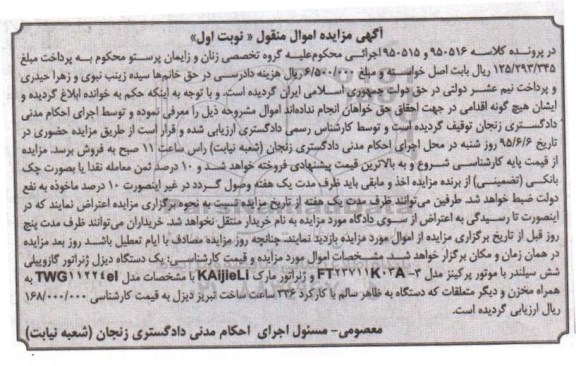 آگهی مزایده اموال منقول « نوبت اول»
در پرونده کلاسه ۹۵۰۵۱۶ و ۹۵۰۵۱۵ اجرائی محکوم‌علیه گروه تخصصی زنان و زایمان پرستو محکوم به پرداخت مبلغ
۱۲۵/۲۹۳/۳۴۵ ریال بابت اصل خواسته و مبلغ ۶/۵۰۰/۰۰۰ ریال هزینه دادرسی در حق خانم‌ها سیده زینب نبوی و زهرا حیدری
و پرداخت نیم عشر دولتی در حق دولت جمهوری اسلامی ایران گردیده است. و با توجه به اینکه حکم به خوانده ابلاغ گردیده و
ایشان هیچ گونه اقدامی در جهت احقاق حق خواهان انجام نداده‌اند اموال مشروحه ذیل را معرفی نموده و توسط اجرای احکام مدنی
دادگستری زنجان توقیف گردیده است و توسط کارشناس رسمی دادگستری ارزیابی شده و قرار است از طریق مزایده حضوری در
تاریخ ۹۵/۶/۶ روز شنبه در محل اجرای احکام مدنی دادگستری زنجان (شعبه نیابت) راس ساعت ۱۱ صبح به فروش برسد. مزایده
از قیمت پایه کارشناسی شروع و به بالاترین قیمت پیشنهادی فروخته خواهد شد و ۱۰ درصد ثمن معامله نقدا یا بصورت چک
بانکی (تضمینی) از برنده مزایده اخذ و مابقی باید ظرف مدت یک هفته وصول گردد در غیر اینصورت ۱۰ درصد ماخوذه به نفع
دولت ضبط خواهد شد. طرفین می‌توانند ظرف مدت یک هفته از تاریخ مزایده نسبت به نحوه برگزاری مزایده اعتراض نمایند که در
اینصورت تا رسیدگی به اعتراض از سوی دادگاه مورد مزایده به نام خریدار منتقل نخواهد شد. خریداران می‌توانند ظرف مدت پنج
روز قبل از تاریخ برگزاری مزایده از اموال مورد مزایده بازدید نمایند. چنانچه روز مزایده مصادف با ایام تعطیل باشد روز بعد مزایده
در همان زمان و مکان برگزار خواهد شد. مشخصات اموال مورد مزایده و قیمت کارشناسی: یک دستگاه دیزل ژنراتور گازوییلی
شش سیلندر با موتور پرکینز مدل FT۲۳۷۱۱K۰۳A-۳ و ژنراتور مارک KAijieLi با مشخصات مدل TWG۱۱۲۲۴el به
همراه مخزن و دیگر متعلقات که دستگاه به ظاهر سالم با کارکرد ۳۳۶ ساعت ساخت تبریز دیزل به قیمت کارشناسی ۱۶۸/۰۰۰/۰۰۰
ریال ارزیابی گردیده است.
معصومی- مسئول اجرای احکام مدنی دادگستری زنجان (شعبه نیابت)